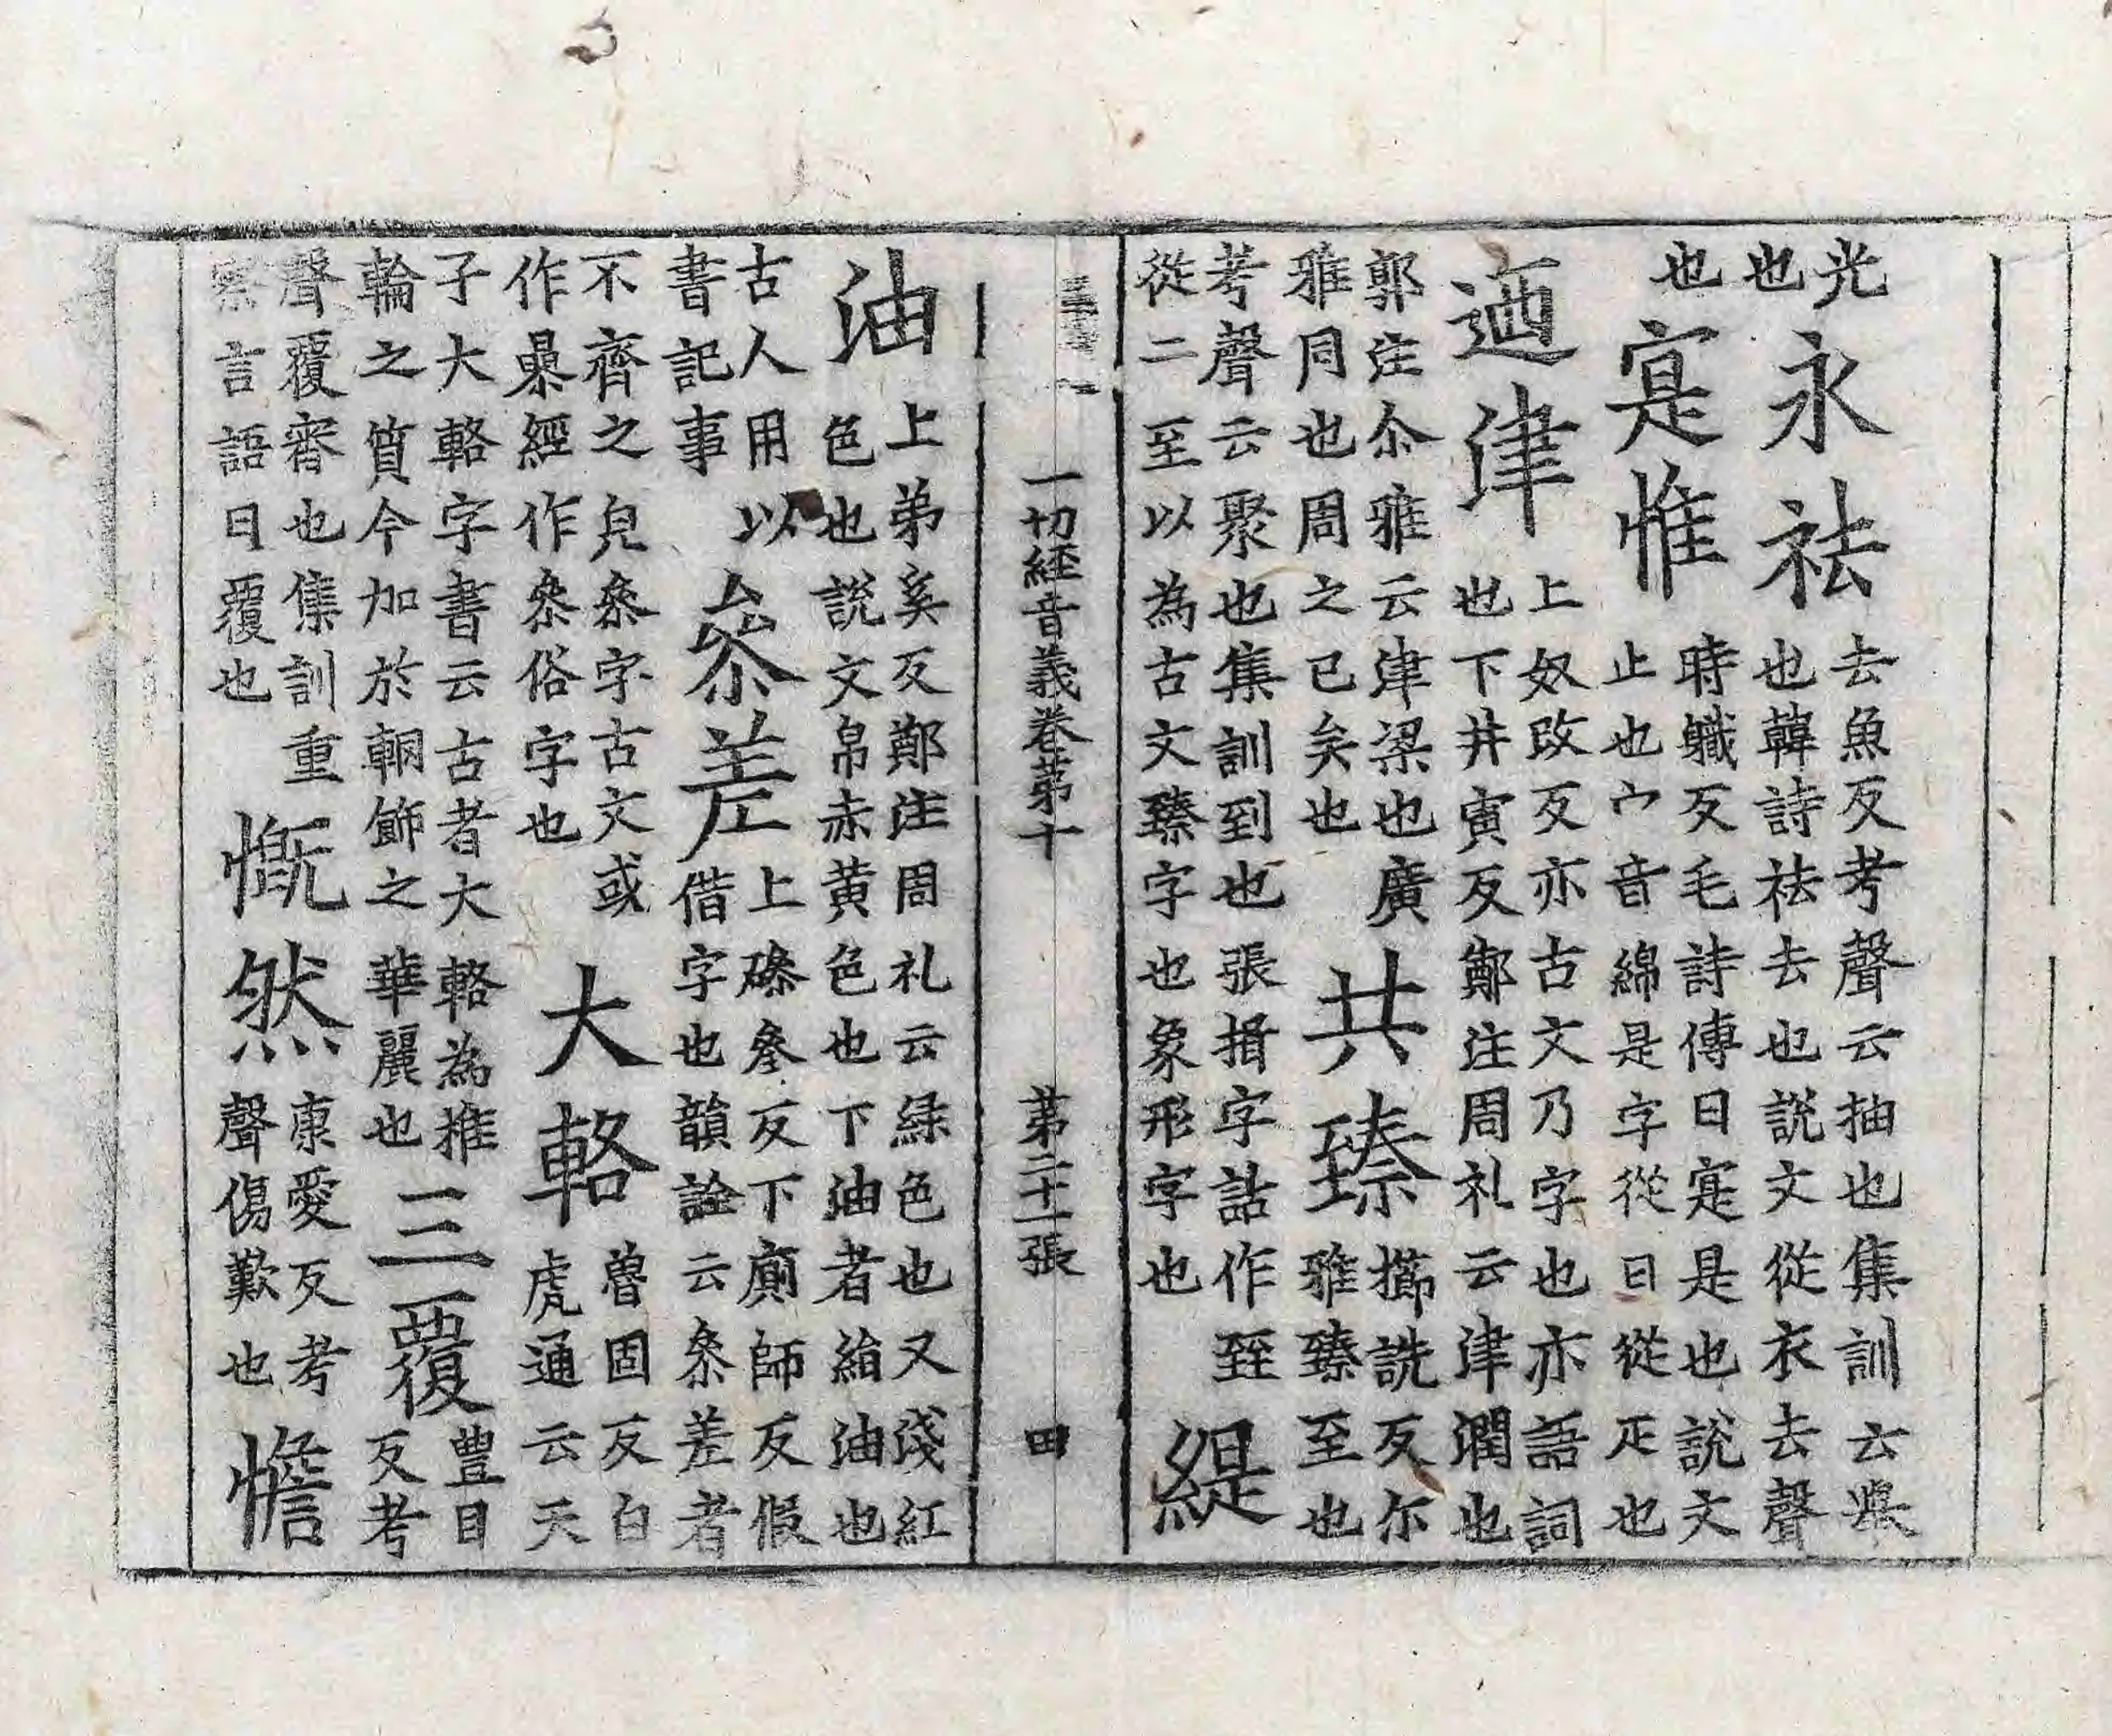 光
也永祛去魚反考聲云抽也集訓云
也韓詩祛去也說文從衣去聲
也寔惟時軄反毛詩傳曰寔是也說文
止也宀音綿是字從日從疋也
迺津上奴改反亦古文乃字也亦語詞
也下井寅反鄭注周礼云津潤也
郭注尒雅云津梁也廣
雅同也周之已矣也共臻櫛詵反尒
雅臻至也
考聲云聚也集訓到也張揖字詁作臸
從二至以為古文臻字也象形字也緹
一切經音義卷第十 第二十一張 田
油上弟奚反鄭注周礼云緑色也又淺紅
色也說文帛赤黃色也下油者紬油也
古人用以
書記事叅差上磣叅反下廁師反假
借字也韻詮云叅差者
不齊之皃叅字古文或
作曑經作叅俗字也大輅魯固反白
虎通云天
子大輅字書云古者大輅為推
輪之質今加於輞飾之華麗也三覆豐目
反考
聲覆審也集訓重
察言語曰覆也慨然康愛反考
聲傷歎也憺